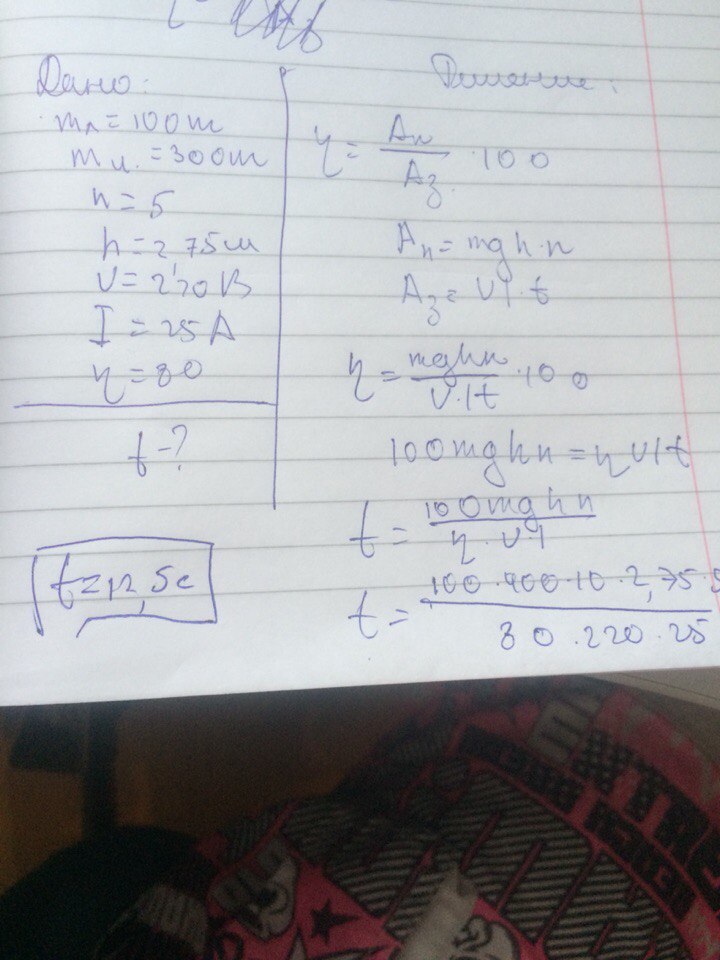 Дано:
mл = 100 т
mч. = 300 т
n = 5
h = 2,75 м
U = 220 В
I = 25 А
η = 80
t - ?
t = 12,5с
Решение:
η = Aп / Aз · 100
Aп = mgh·n
Aз = UI·t
η = mghn / U·It · 100
100mghn = ηUIt
t = 100mghn / η·UI
t = 100·400·10·2,75·5 / 80·220·25